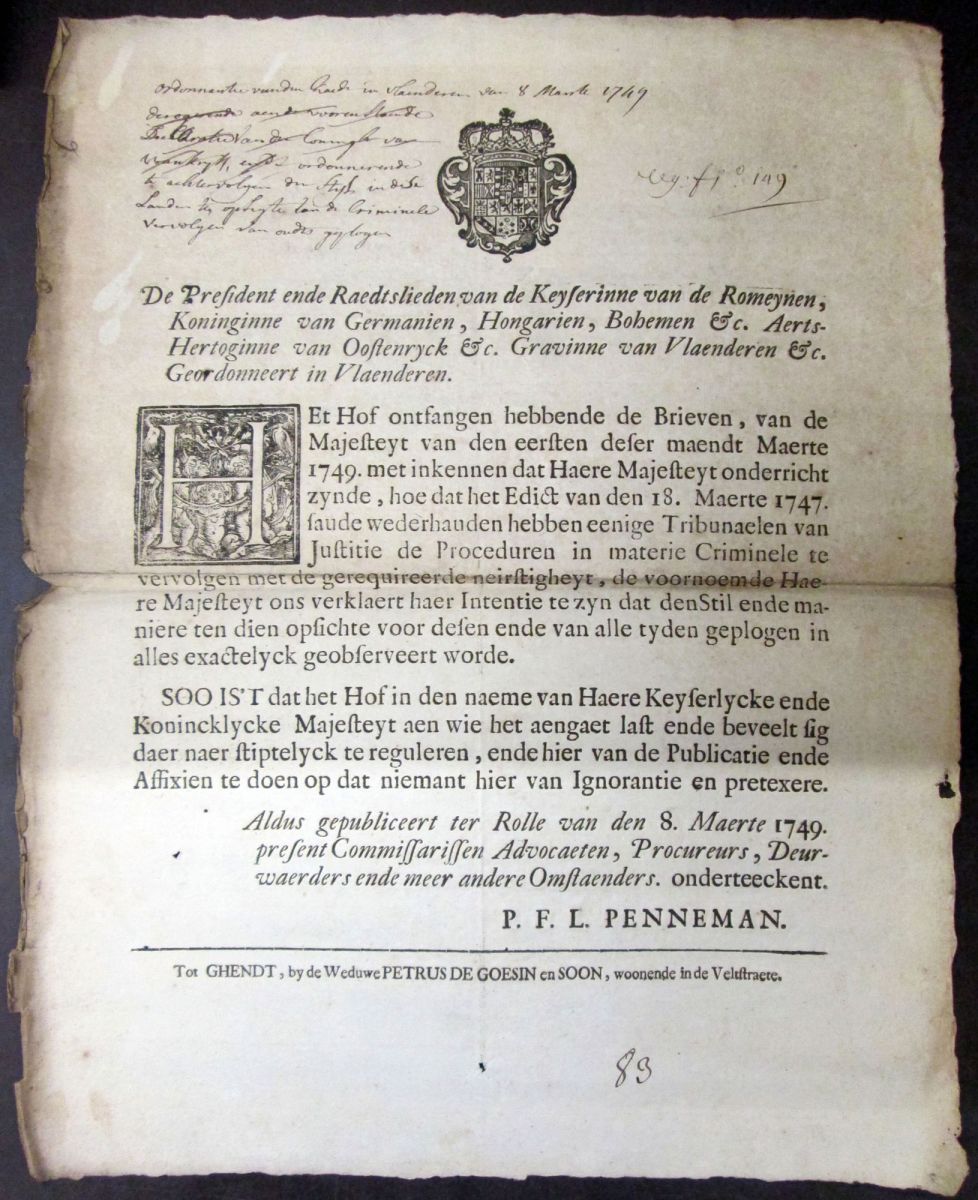 Ordonnantie vanden Raede in vlaenderen van 8 Maerte 1749
ordonnerende
t'achtervolgen den styl in dese
Landen
Criminele
vervolgen van oudts geplogen
149
De President ende Raedtslieden van de Keyserinne van de Romeynen,
Koninginne van Germanien, Hongarien, Bohemen &c. Aerts-
Hertoginne van Oostenryck &c. Gravinne van Vlaenderen &c.
Geordonneert in Vlaenderen.
HEt Hof ontfangen hebbende de Brieven, van de
Majesteyt van den eersten deser maendt Maerte
1749. met inkennen dat Haere Majesteyt onderricht
zynde, hoe dat het Edict van den 18. Maerte 1747.
saude wederhauden hebben eenige Tribunaelen van
Justitie de Proceduren in materie Criminele te
vervolgen met de gerequireerde neirstigheyt, de voornoemde Hae-
re Majesteyt ons verklaert haer Intentie te zyn dat den Stil ende ma-
niere ten dien opsichte voor desen ende van alle tyden geplogen in
alles exactelyck geobserveert worde.
SOO IS'T dat het Hof in den naeme van Haere Keyserlycke ende
Konincklycke Majesteyt aen wie het aengaet last ende beveelt sig
daer naer stiptelyck te reguleren, ende hier van de Publicatie ende
Affixien te doen op dat niemant hier van Ignorantie en pretexere.
Aldus gepubliceert ter Rolle van den 8. Maerte 1749.
present Commissarissen Advocaeten, Procureurs, Deur-
waerders ende meer andere Omstaenders. onderteeckent.
P. F. L. PENNEMAN.
Tot GHENDT, by de Weduwe PETRUS DE GOESIN en SOON, woonende in de Veltstraete.
83